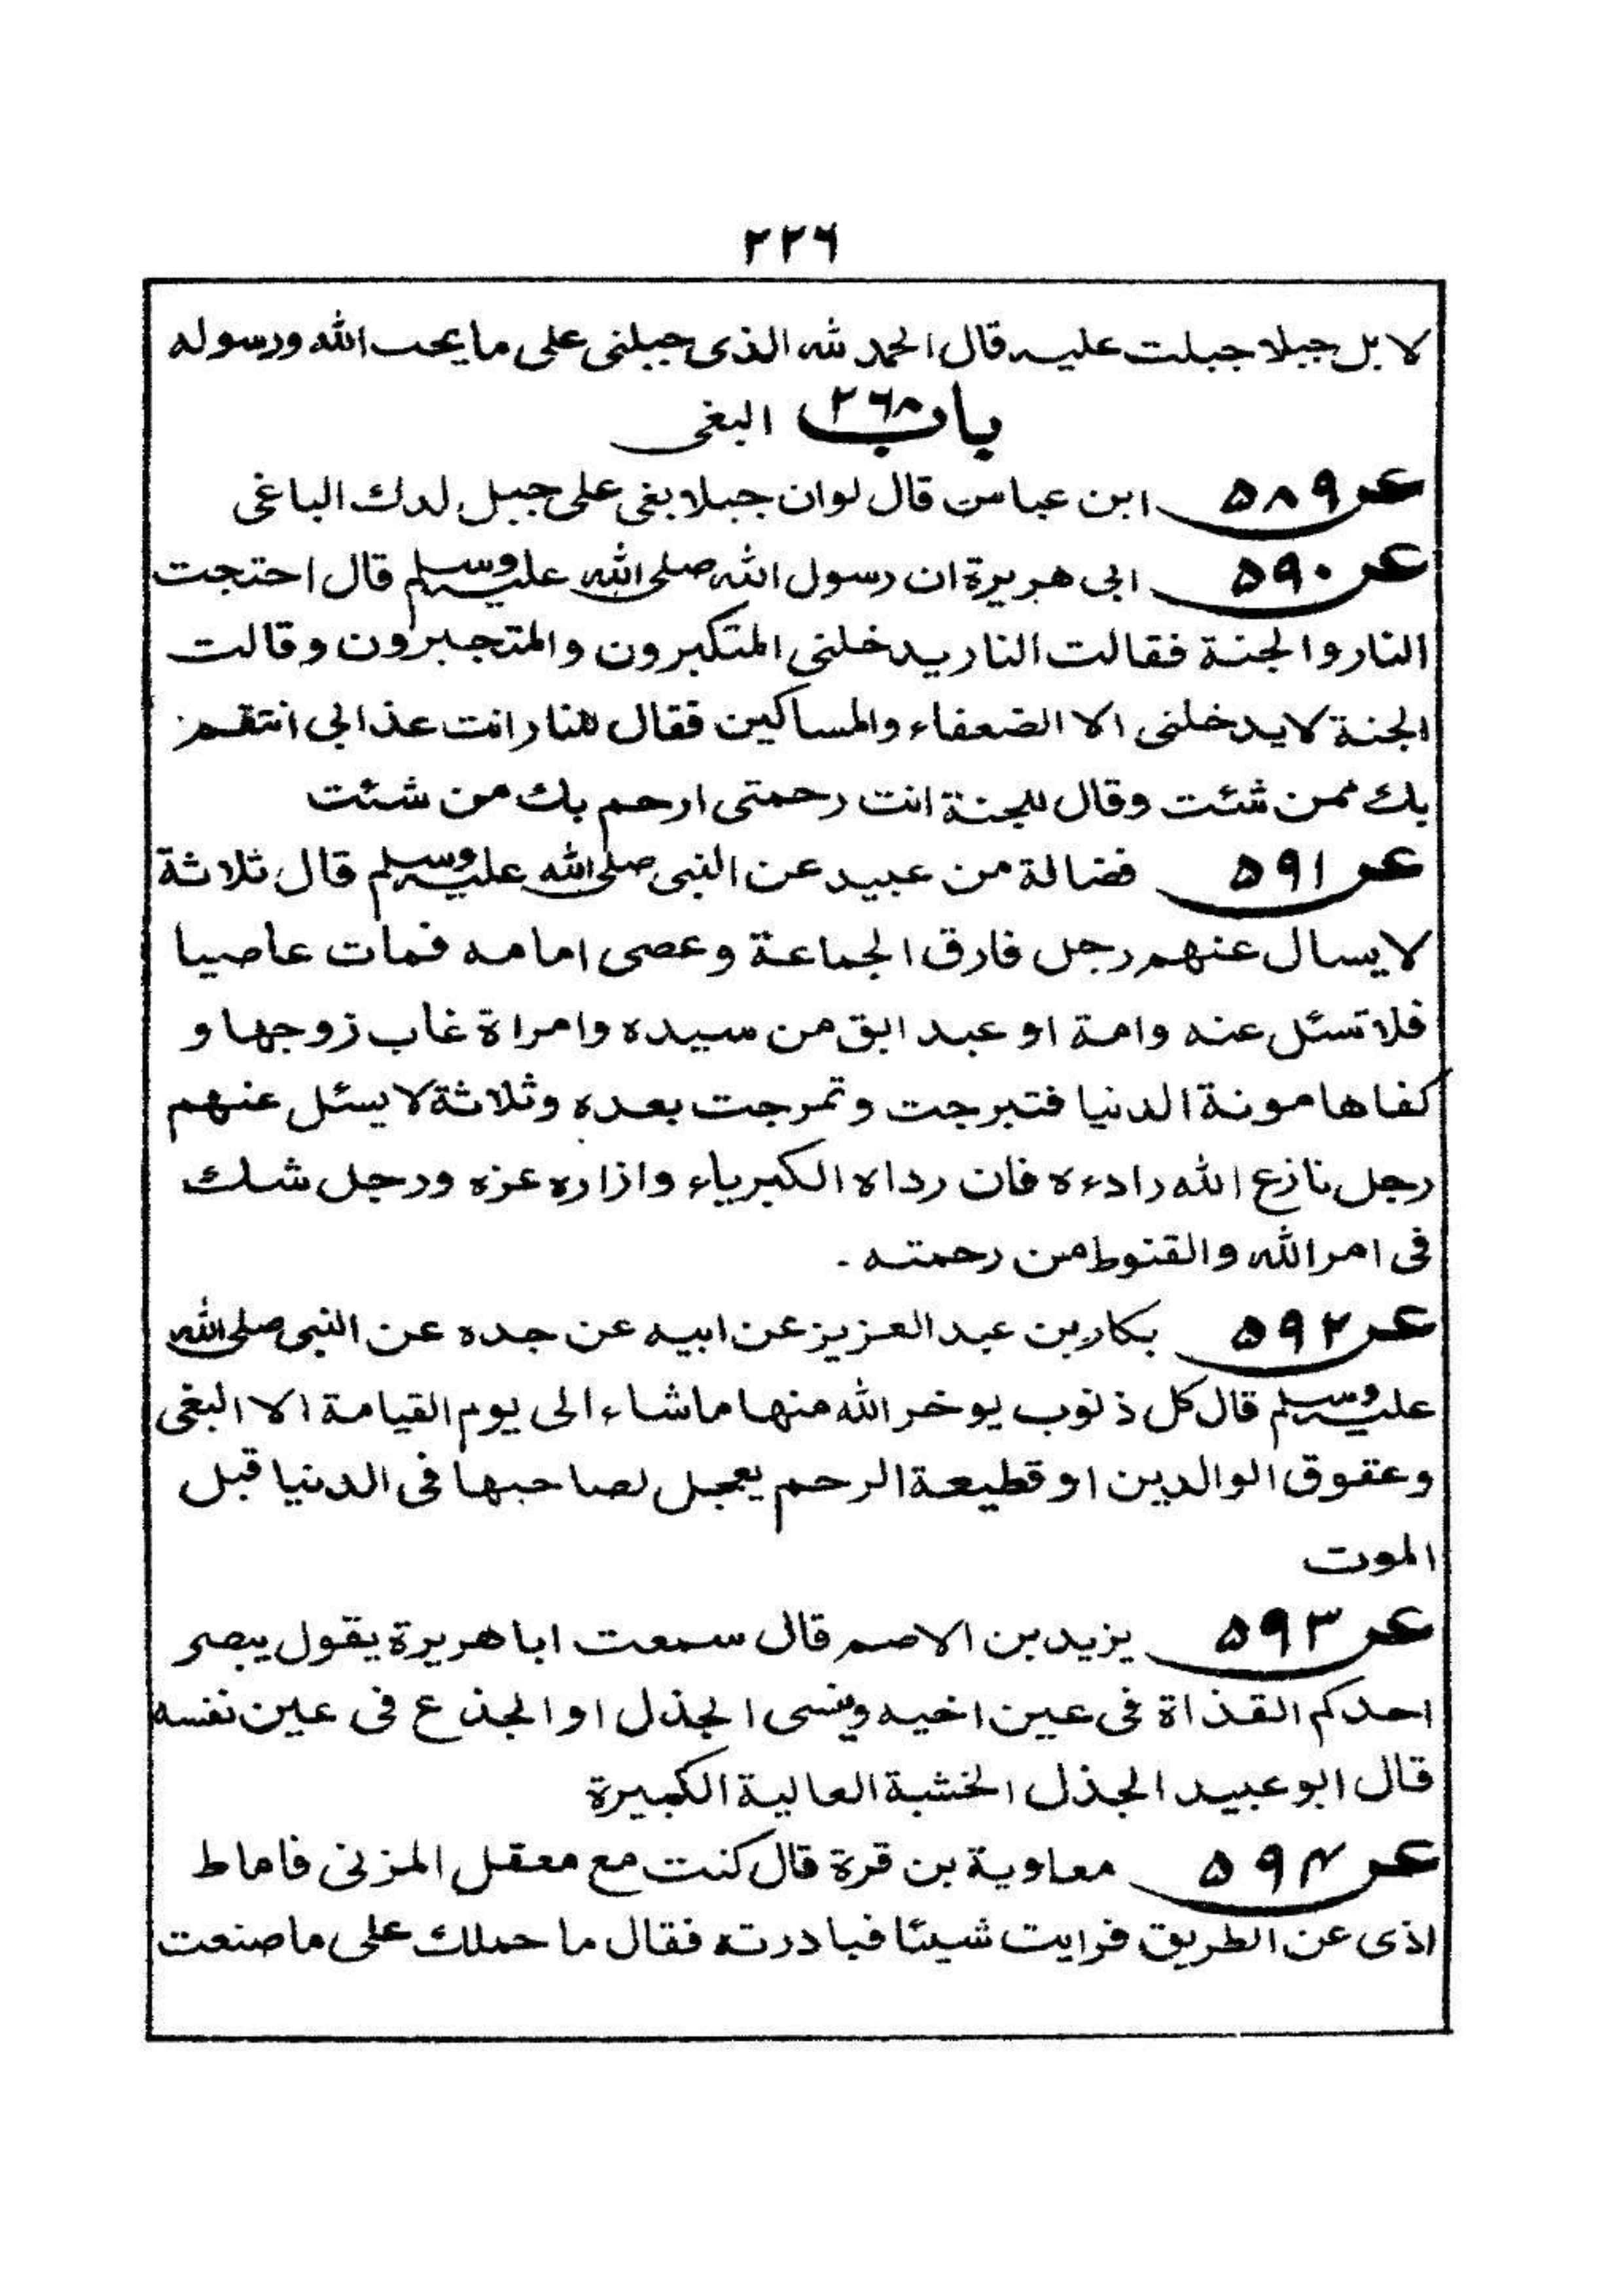 ٢٢٦
لا بل جبلا جبلت عليه قال الحمد لله الذى جبلنى على ما يحب الله ورسوله
باب ٢٦٨ البغى
عن ٥٨٩ ابن عباس قال لوان جبلا بغى على جبل لدك الباغى
عن ٥٩٠ ابى هريرة ان رسول الله صلى الله عليه وسلم قال احتجت
النار والجنة فقالت النار يدخلنى المتكبرون والمتجبرون وقالت
الجنة لا يدخلنى الا الضعفاء والمساكين فقال للنار انت عذابى انتقم
بك ممن شئت وقال للجنة انت رحمتى ارحم بك من شئت
عن ٥٩١ فضالة من عبيد عن النبى صلى الله عليه وسلم قال ثلاثة
لا يسال عنهم رجل فارق الجماعة وعصى امامه فمات عاصيا
فلا تسئل عنه وامة او عبد ابق من سيده وامراة غاب زوجها و
كفاها مونة الدنيا فتبرجت وتمرجت بعده وثلاثة لا يسئل عنهم
رجل نازع الله رادءه فان رداه الكبرياء وازاره عزه ورجل شك
فى امر الله والقنوط من رحمته .
عن ٥٩٢ بكار بن عبد العزيز عن ابيه عن جده عن النبى صلى الله
عليه وسلم قال كل ذنوب يوخر الله منها ما شاء الى يوم القيامة الا البغى
وعقوق الوالدين او قطيعة الرحم يعجل لصاحبها فى الدنيا قبل
الموت
عن ٥٩٣ يزيد بن الاصم قال سمعت ابا هريرة يقول يبصر
احدكم القذاة فى عين اخيه وينسى الجذل او الجذع فى عين نفسه
قال ابو عبيد الجذل الخشبة العالية الكبيرة
عن ٥٩٤ معاوية بن قرة قال كنت مع معقل المزنى فاماط
اذى عن الطريق فرايت شيئا فبادرته فقال ما حملك على ما صنعت